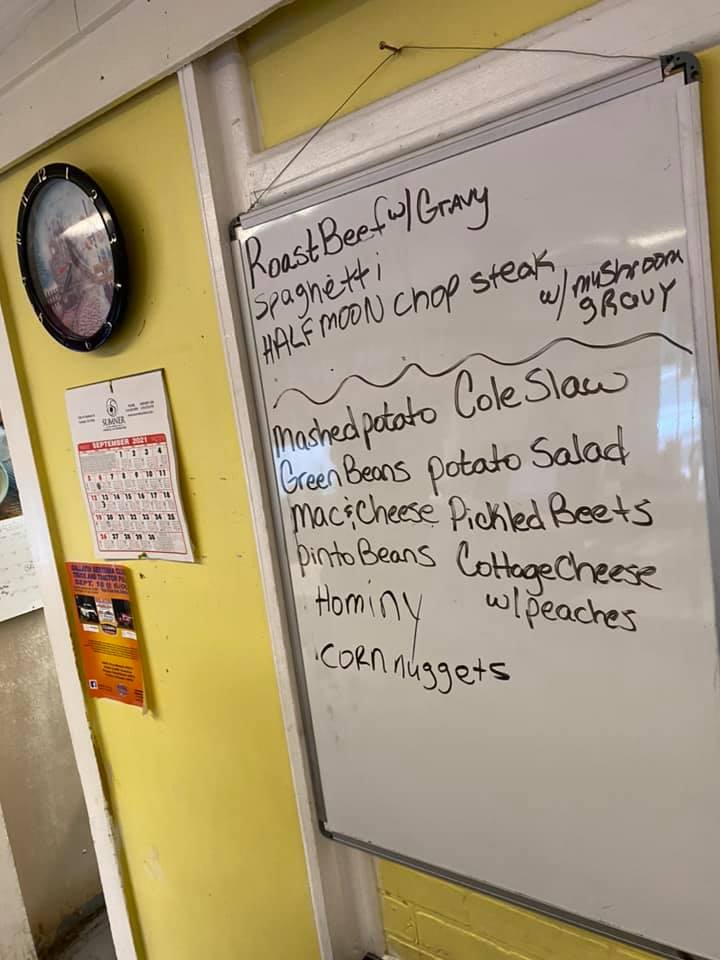 Roast Beef w/ GRAVY
Spaghetti
HALF MOON chop steak
w/ mushroom
gRavy
Mashed potato Cole Slaw
Green Beans potato Salad
Mac & Cheese Pickled Beets
pinto Beans Cottage Cheese
w/ peaches
Hominy
CORN nuggets
12
SUMNER
SEPTEMBER 2021
1 2 3 4
5 6 7 8 9 10 11
12 13 14 15 16 17 18
19 20 21 22 23 24 25
26 27 28 29 30
TRUCK AND TRACTOR
SEPT. 18 @